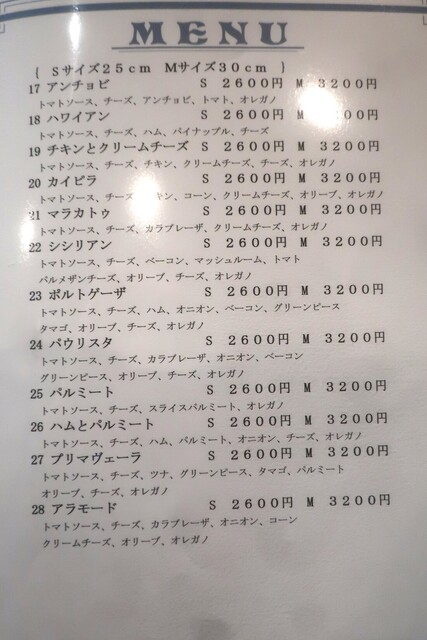 MENU
{ Sサイズ25cm Mサイズ30cm }
17 アンチョビ S 2600円 M 3200円
トマトソース、チーズ、アンチョビ、トマト、オレガノ
18 ハワイアン S 2600円 M 00円
トマトソース、チーズ、ハム、パイナップル、チーズ
19 チキンとクリームチーズ S 2600円 M 3200円
トマトソース、チーズ、チキン、クリームチーズ、チーズ、オレガノ
20 カイピラ S 2600円 M 3200円
トマトソース、チーズ、キン、コーン、クリームチーズ、オリーブ、オレガノ
21 マラカトゥ S 2600円 M 3200円
トマトソース、チーズ、カラブレーザ、クリームチーズ、オレガノ
22 シシリアン S 2600円 M 3200円
トマトソース、チーズ、ベーコン、マッシュルーム、トマト
パルメザンチーズ、オリーブ、チーズ、オレガノ
23 ポルトゲーザ S 2600円 M 3200円
トマトソース、チーズ、ハム、オニオン、ベーコン、グリーンピース
タマゴ、オリーブ、チーズ、オレガノ
24 パウリスタ S 2600円 M 3200円
トマトソース、チーズ、カラブレーザ、オニオン、ベーコン
グリーンピース、オリーブ、チーズ、オレガノ
25 パルミート S 2600円 M 3200円
トマトソース、チーズ、スライスパルミート、オレガノ
26 ハムとパルミート S 2600円 M 3200円
トマトソース、チーズ、ハム、パルミート、オニオン、チーズ、オレガノ
27 プリマヴェーラ S 2600円 M 3200円
トマトソース、チーズ、ツナ、グリーンピース、タマゴ、パルミート
オリーブ、チーズ、オレガノ
28 アラモード S 2600円 M 3200円
トマトソース、チーズ、カラブレーザ、オニオン、コーン
クリームチーズ、オリーブ、オレガノ